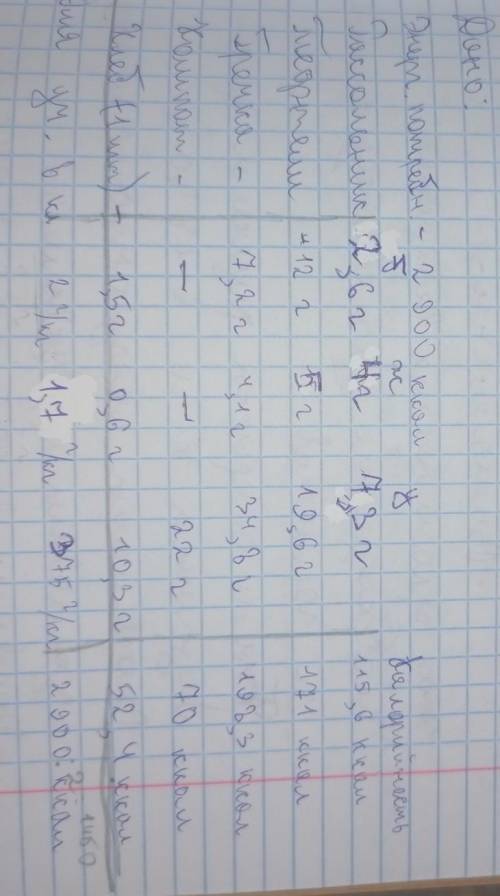 Дано:
Энерг. потребн - 2 900 ккал
Б Ж У калорийность
Рассольник 2,6 г 4г 17,3 г 115,6 ккал
Тефтели - 12 г 15 г 10,6 г 171 ккал
Гречка - 7,2 г 4,1 г 34,8 г 198,3 ккал
Компот - — — 22 г 70 ккал
Хлеб (1 шт) - 1,5 г 0,6 г 10,3 г 52,4 ккал
ум. в ка 2 г/кг 1,7 г/кг 375 г/кг 2900 : 2 ккал
1450